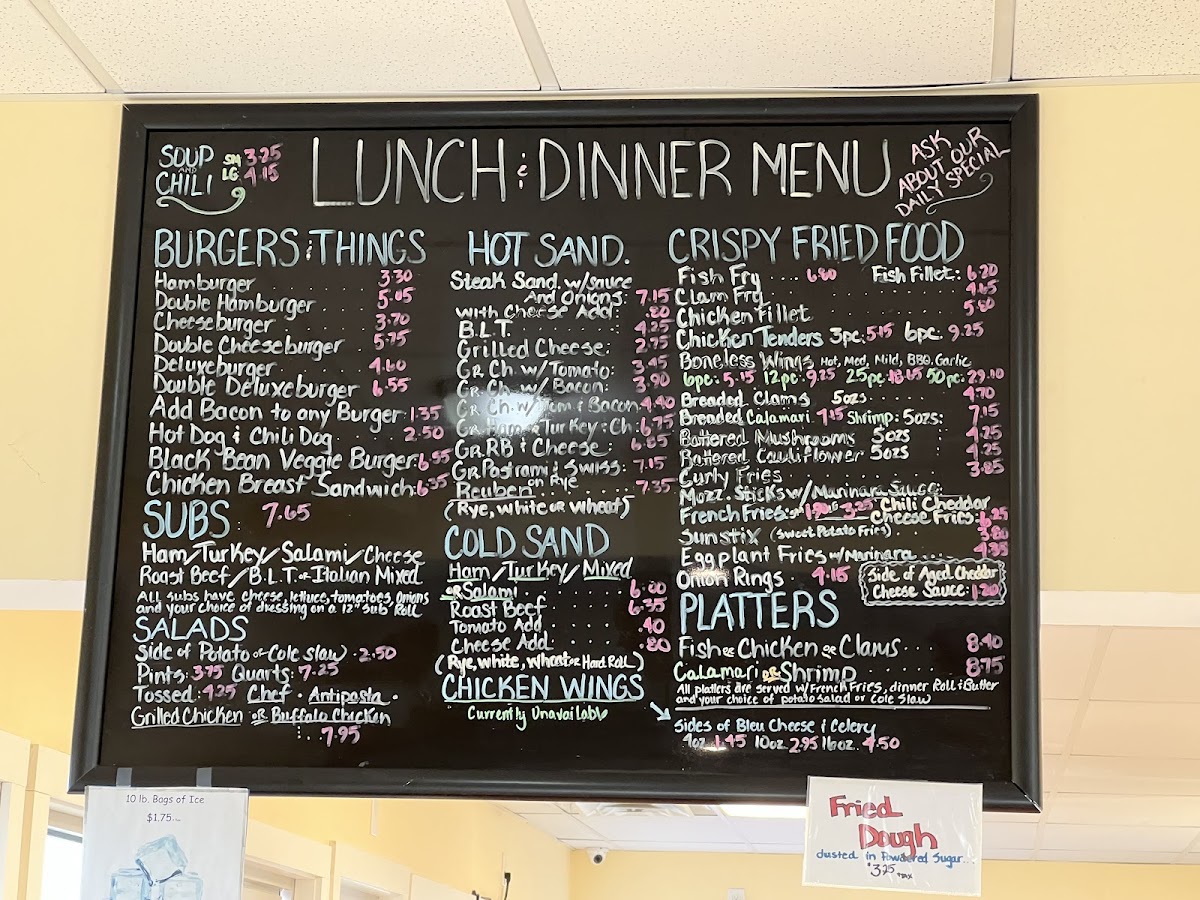 SOUP AND CHILI SM 3.25 LG 4.15
LUNCH & DINNER MENU
ASK ABOUT OUR DAILY SPECIAL
BURGERS & THINGS
Hamburger 3.30
Double Hamburger 5.05
Cheeseburger 3.70
Double Cheeseburger 5.75
Deluxeburger 4.60
Double Deluxeburger 6.55
Add Bacon to any Burger: 1.35
Hot Dog & Chili Dog 2.50
Black Bean Veggie Burger: 6.55
Chicken Breast Sandwich: 6.35
SUBS: 7.65
Ham/Turkey/Salami/Cheese
Roast Beef/B.L.T. or Italian Mixed
All subs have cheese, lettuce, tomatoes, onions
and your choice of dressing on a 12" sub Roll
SALADS
Side of Potato or Cole slaw 2.50
Pints: 3.75 Quarts: 7.25
Tossed 4.25 Chef · Antipasta ·
Grilled Chicken OR Buffalo Chicken
7.95
HOT SAND.
Steak Sand. w/sauce
And Onions: 7.15
with Cheese Add: .80
B.L.T. 4.25
Grilled Cheese: 2.75
GR. Ch. w/Tomato: 3.45
GR. Ch. w/ Bacon: 3.90
GR. Ch. w/Tom & Bacon 4.40
Gr. Ham or Turkey & Ch: 6.75
Gr. RB & Cheese: 6.85
Gr. Pastrami & Swiss: 7.15
on Rye
Reuben 7.35
(Rye, white or wheat)
COLD SAND
Ham/Turkey/Mixed
OR Salami 6.00
Roast Beef 6.35
Tomato Add .40
Cheese Add .80
(Rye, white, wheat or Hard Roll)
CHICKEN WINGS
Currently Unavailable
CRISPY FRIED FOOD
Fish Fry 6.80 Fish Fillet: 6.20
Clam Fry 4.65
Chicken Fillet 5.80
Chicken Tenders 3pc: 5.15 6pc. 9.25
Boneless Wings Hot, Med, Mild, BBQ, Garlic
6pc: 5.15 12pc: 9.25 25pc 18.65 50pc: 29.10
Breaded Clams 5ozs 4.70
Breaded Calamari 7.15 Shrimp: 5ozs: 7.15
Battered Mushrooms 5ozs 4.25
Battered Cauliflower 5ozs 4.25
Curly Fries 3.85
Mozz. Sticks w/Marinara Sauce:
French Fries: 3.25 Chili Cheddar
Cheese Fries: 6.25
Sunstix (Sweet Potato Fries) 3.80
Eggplant Fries w/Marinara 4.95
Onion Rings 4.15
Side of Aged Cheddar
Cheese Sauce: 1.80
PLATTERS
Fish or Chicken or Clams 8.40
Calamari OR Shrimp 8.75
All platters are served w/French Fries, dinner Roll & Butter
and your choice of potato salad or Cole Slaw
Sides of Bleu Cheese & Celery
4oz 1.45 10oz. 2.95 16oz. 4.50
10 lb. Bags of Ice
$1.75
Fried
Dough
dusted in Powdered Sugar
$3.25 +tax